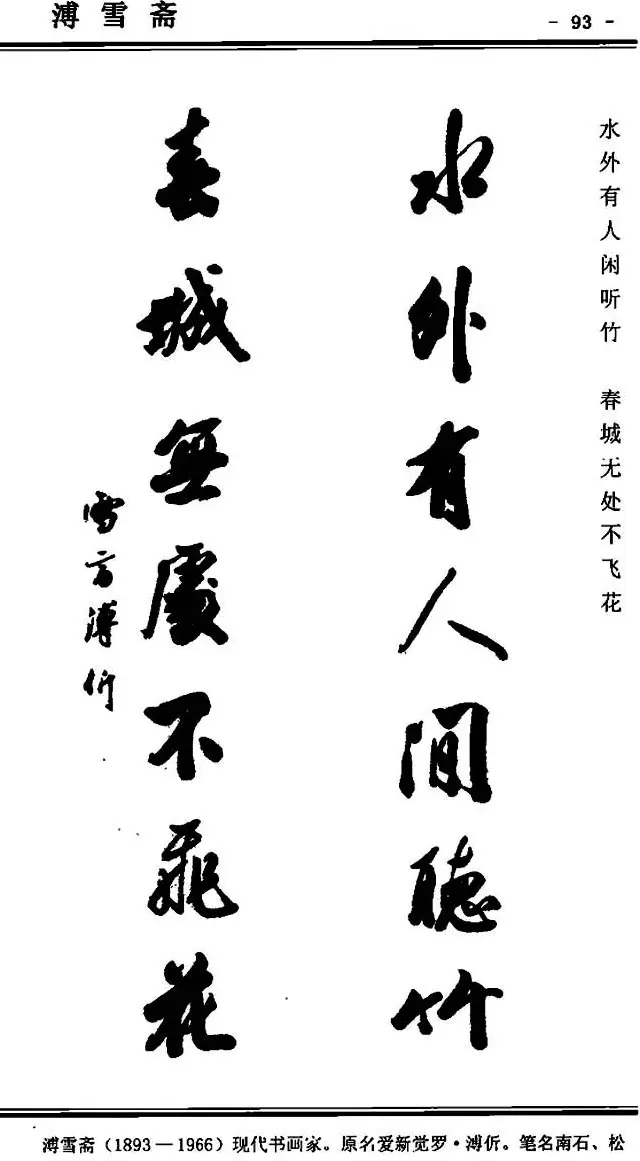 溥雪斋
- 93 -
水外有人闲听竹 春城无处不飞花
水外有人间聽竹
春城無處不飛花
雪斋溥伒
溥雪斋（1893—1966）现代书画家。原名爱新觉罗·溥伒。笔名南石、松